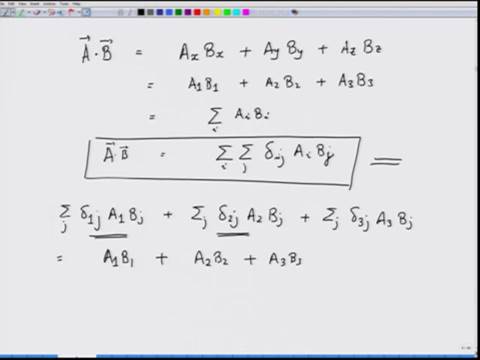 A⃗ · B⃗ = AxBx + AyBy + AzBz
= A1B1 + A2B2 + A3B3
= Σi AiBi
A⃗·B⃗ = Σi Σj δij Ai Bj
Σj δ1j A1 Bj + Σj δ2j A2 Bj + Σj δ3j A3 Bj
= A1B1 + A2B2 + A3B3